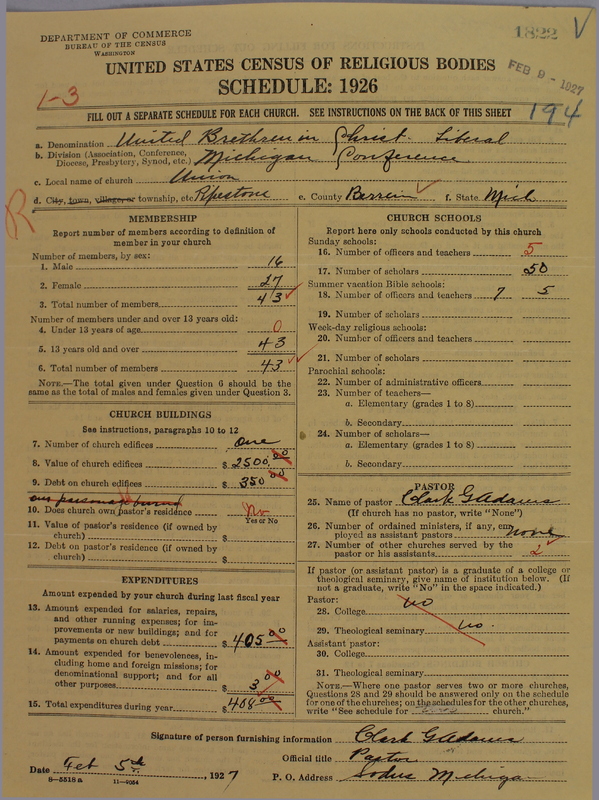 DEPARTMENT OF COMMERCE
BUREAU OF THE CENSUS
WASHINGTON
1822 V
UNITED STATES CENSUS OF RELIGIOUS BODIES
FEB 9 - 1927
SCHEDULE: 1926
1-3
FILL OUT A SEPARATE SCHEDULE FOR EACH CHURCH. SEE INSTRUCTIONS ON THE BACK OF THIS SHEET
194
a. Denomination United Brethren in Christ. Liberal
b. Division (Association, Conference, Diocese, Presbytery, Synod, etc.) Michigan Conference
c. Local name of church Union
d. City, town, village, or township, etc. Pipestone e. County Berrien f. State Mich
R
MEMBERSHIP
Report number of members according to definition of
member in your church
Number of members, by sex:
1. Male 16
2. Female 27
3. Total number of members 43
Number of members under and over 13 years old:
4. Under 13 years of age 0
5. 13 years old and over 43
6. Total number of members 43
NOTE.—The total given under Question 6 should be the
same as the total of males and females given under Question 3.
CHURCH BUILDINGS
See instructions, paragraphs 10 to 12
7. Number of church edifices one
8. Value of church edifices $ 2500.00
9. Debt on church edifices $ 350 00
our parsonage burned
10. Does church own pastor's residence? No
Yes or No
11. Value of pastor's residence (if owned by
church) $
12. Debt on pastor's residence (if owned by
church) $
EXPENDITURES
Amount expended by your church during last fiscal year
13. Amount expended for salaries, repairs,
and other running expenses; for im-
provements or new buildings; and for
payments on church debt $ 405 00
14. Amount expended for benevolences, in-
cluding home and foreign missions; for
denominational support; and for all
other purposes $ 3 00
15. Total expenditures during year $ 408 00
CHURCH SCHOOLS
Report here only schools conducted by this church
Sunday schools:
16. Number of officers and teachers 5
17. Number of scholars 50
Summer vacation Bible schools:
18. Number of officers and teachers 7 5
19. Number of scholars
Week-day religious schools:
20. Number of officers and teachers
21. Number of scholars
Parochial schools:
22. Number of administrative officers
23. Number of teachers—
a. Elementary (grades 1 to 8)
b. Secondary
24. Number of scholars—
a. Elementary (grades 1 to 8)
b. Secondary
PASTOR
25. Name of pastor Clark G Adams
(If church has no pastor, write "None")
26. Number of ordained ministers, if any, em-
ployed as assistant pastors none
27. Number of other churches served by the
pastor or his assistants 2
If pastor (or assistant pastor) is a graduate of a college or
theological seminary, give name of institution below. (If
not a graduate, write "No" in the space indicated.)
Pastor:
28. College no
29. Theological seminary no.
Assistant pastor:
30. College
31. Theological seminary
NOTE.—Where one pastor serves two or more churches,
Questions 28 and 29 should be answered only on the schedule
for one of the churches; on the schedules for the other churches,
write "See schedule for church."
Signature of person furnishing information Clark G Adams
Official title Pastor
Date Feb 5th, 1927
P. O. Address Sodus Michiga
8—5518 a 11—9054